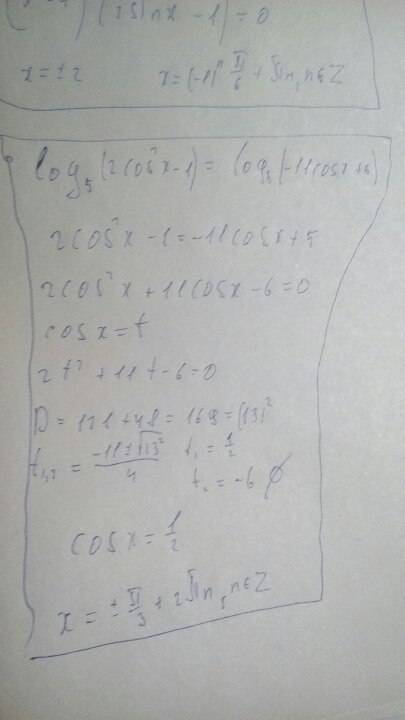 (2sinx - 1) = 0
x = ± 2 x = (-1)ⁿ π/6 + πn, n∈Z
log₅(2cos²x-1) = log₅(-11cosx+5)
2cos²x - 1 = -11cosx + 5
2cos²x + 11cosx - 6 = 0
cosx = t
2t² + 11t - 6 = 0
D = 121 + 48 = 169 = (13)²
t₁,₂ = (-11 ± √13²)/4 t₁ = 1/2
t₂ = -6 ∅
cosx = 1/2
x = ± π/3 + 2πn, n∈Z